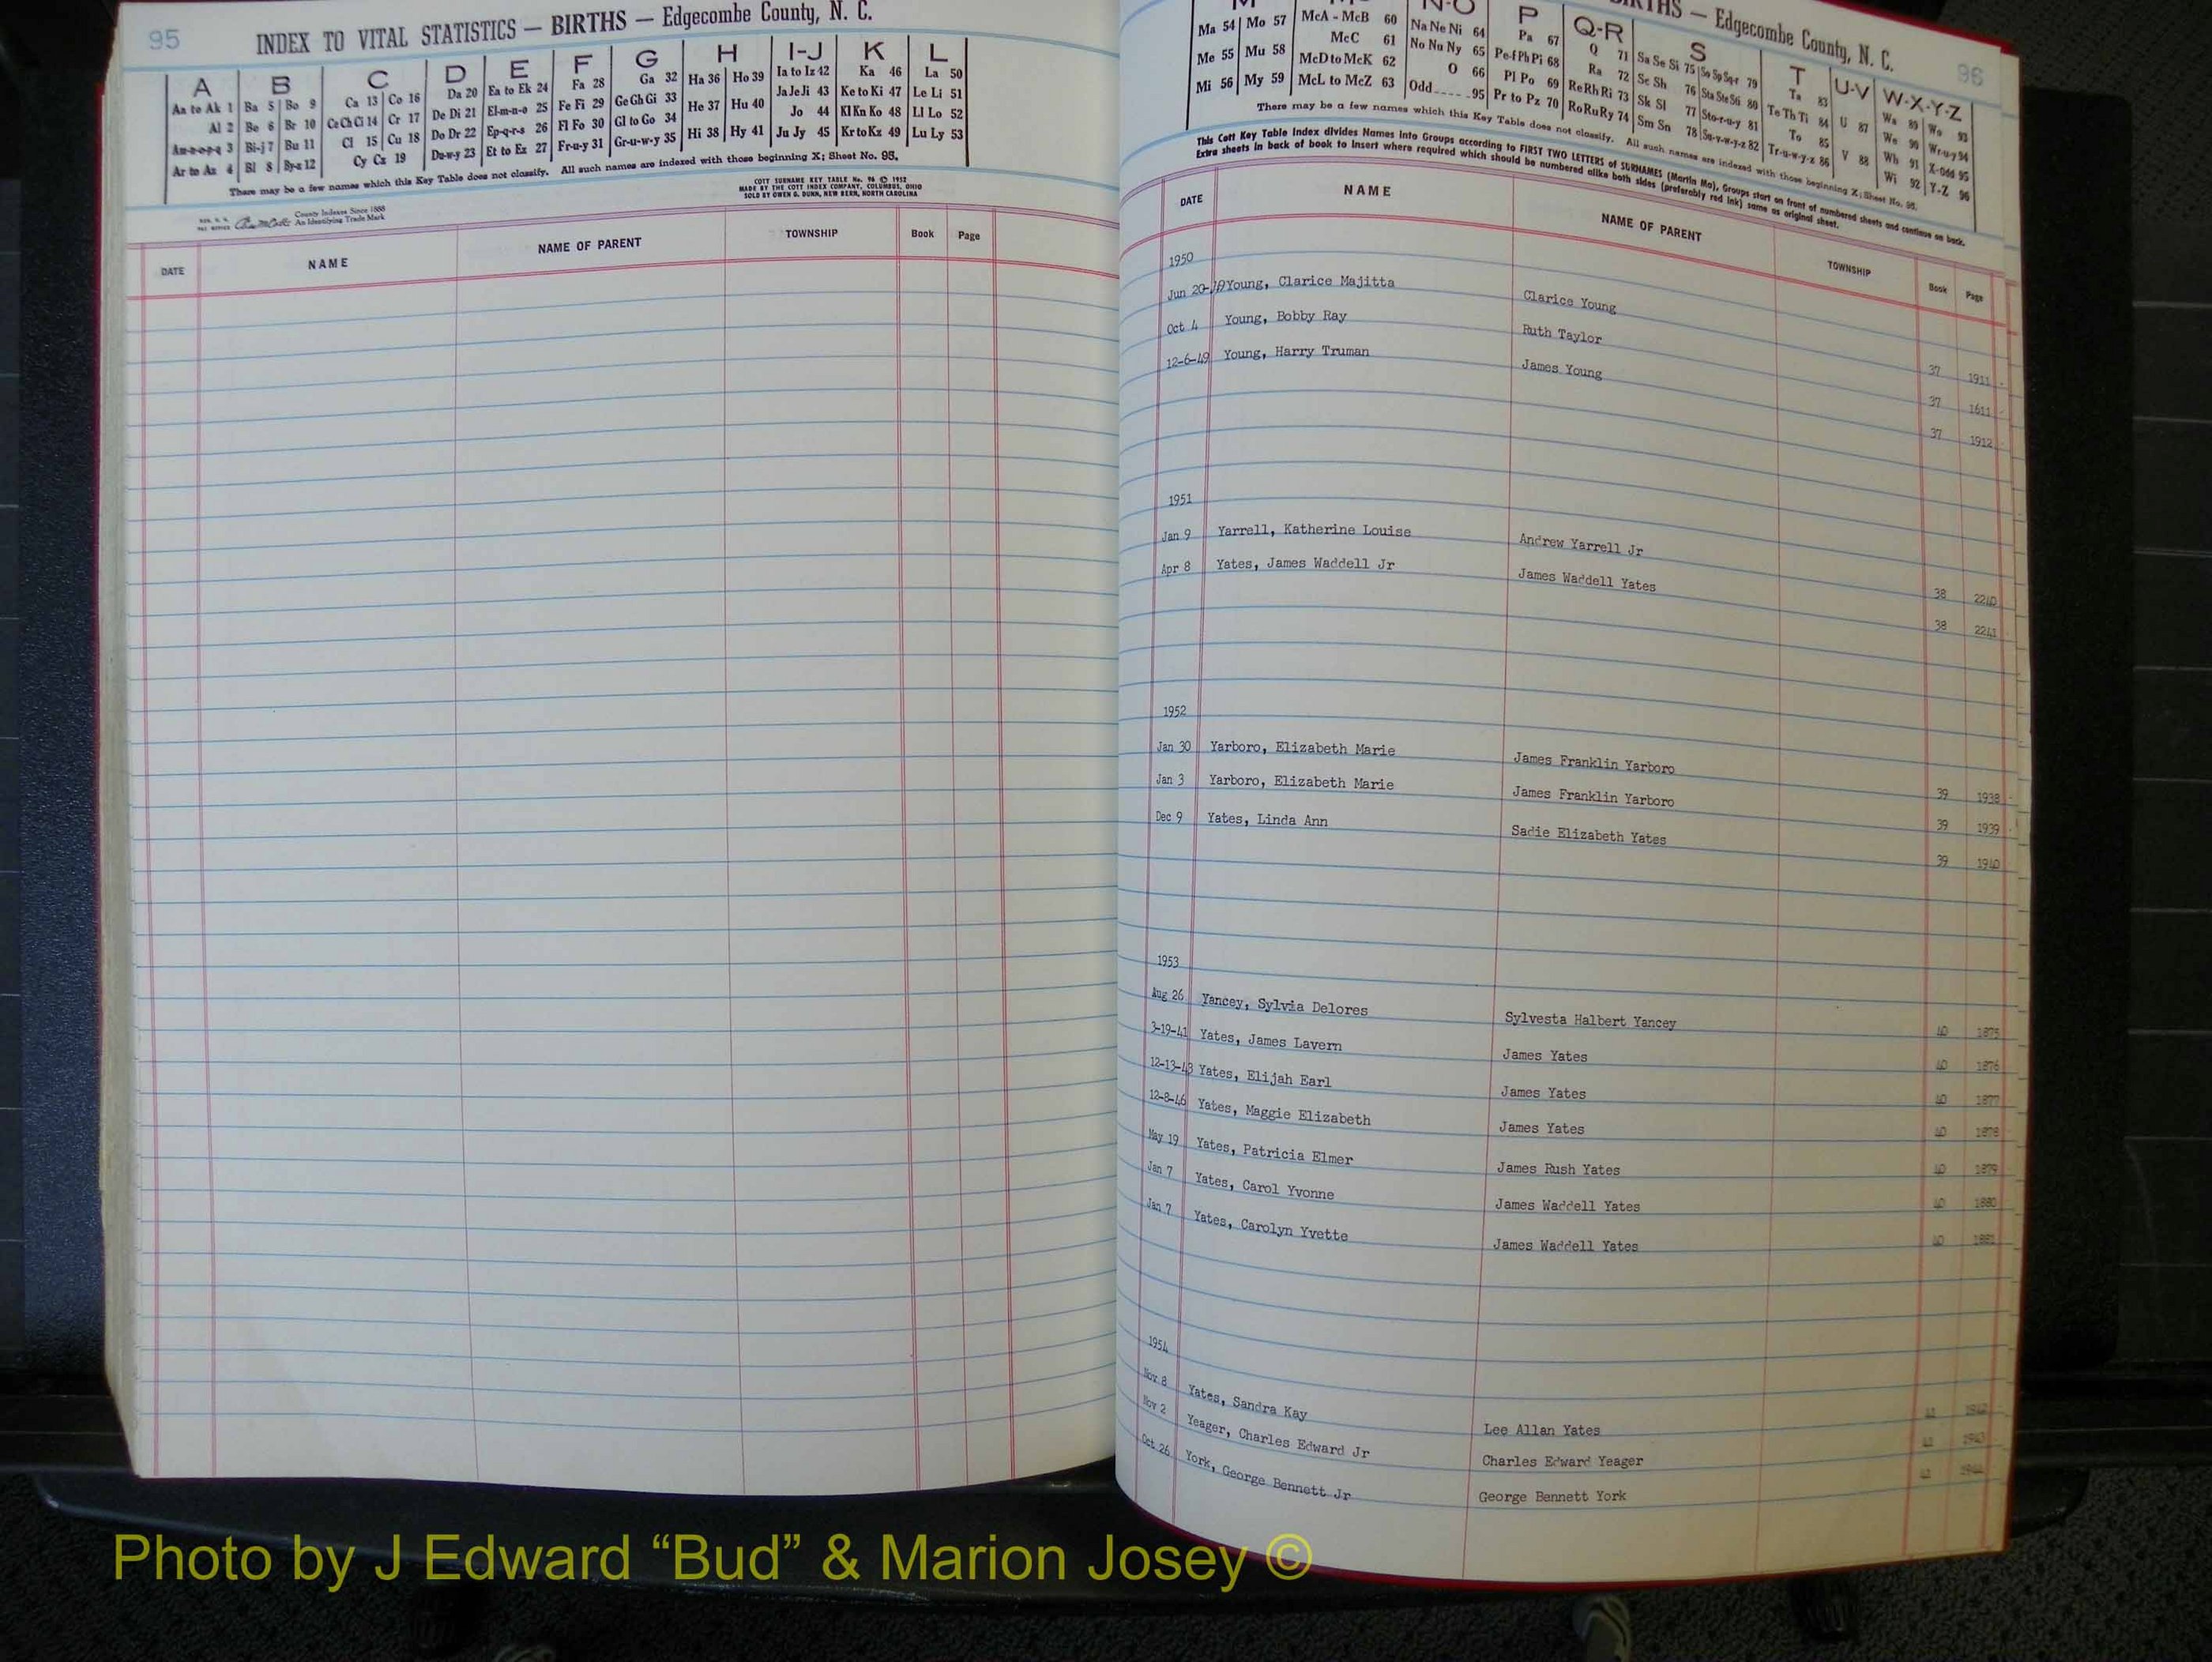 95
INDEX TO VITAL STATISTICS — BIRTHS — Edgecombe County, N. C.
A B C D E F G H I-J K L
Aa to Ak 1 Ba 5 Bo 9 Ca 13 Co 16 Da 20 Ea to Ek 24 Fa 28 Ga 32 Ha 36 Ho 39 Ia to Iz 42 Ka 46 La 50
Al 2 Be 6 Br 10 Ce Ch Ci 14 Cr 17 De Di 21 El-m-n-o 25 Fe Fi 29 Ge Gh Gi 33 He 37 Hu 40 Ja Je Ji 43 Ke to Ki 47 Le Li 51
Am-n-o-p-q 3 Bi-j 7 Bu 11 Cl 15 Cu 18 Do Dr 22 Ep-q-r-s 26 Fl Fo 30 Gl to Go 34 Hi 38 Hy 41 Jo 44 Kl Kn Ko 48 Ll Lo 52
Ar to Az 4 Bl 8 By-z 12 Cy Cz 19 Du-w-y 23 Et to Ez 27 Fr-u-y 31 Gr-u-w-y 35 Ju Jy 45 Kr to Kz 49 Lu Ly 53
There may be a few names which this Key Table does not classify. All such names are indexed with those beginning X; Sheet No. 95.
COTT SURNAME KEY TABLE No. 96 © 1952
MADE BY THE COTT INDEX COMPANY, COLUMBUS, OHIO
SOLD BY OWEN G. DUNN, NEW BERN, NORTH CAROLINA
County Indexes Since 1888
An Identifying Trade Mark
DATE NAME NAME OF PARENT TOWNSHIP Book Page
BIRTHS — Edgecombe County, N. C.
96
N-O P Q-R S T U-V W-X-Y-Z
Ma 54 Mo 57 McA - McB 60 Na Ne Ni 64 Pa 67 Q 71 Sa Se Si 75 So Sp Sq-r 79 Ta 83 U 87 Wa 89 Wo 93
Me 55 Mu 58 McC 61 No Nu Ny 65 Pe-f Ph Pi 68 Ra 72 Sc Sh 76 Sta Ste Sti 80 Te Th Ti 84 V 88 We 90 Wr-u-y 94
Mi 56 My 59 McD to McK 62 O 66 Pl Po 69 Re Rh Ri 73 Sk Sl 77 Sto-r-u-y 81 To 85 Wh 91 X-Odd 95
McL to McZ 63 Odd 95 Pr to Pz 70 Ro Ru Ry 74 Sm Sn 78 Su-v-w-y-z 82 Tr-u-w-y-z 86 Wi 92 Y-Z 96
There may be a few names which this Key Table does not classify. All such names are indexed with those beginning X; Sheet No. 95.
This Cott Key Table Index divides Names into Groups according to FIRST TWO LETTERS of SURNAMES (Martin Ma), Groups start on front of numbered sheets and continue on back.
Extra sheets in back of book to insert where required which should be numbered alike both sides (preferably red ink) same as original sheet.
DATE NAME NAME OF PARENT TOWNSHIP Book Page
1950
Jun 20- Young, Clarice Majitta Clarice Young 37 1911
Oct 4 Young, Bobby Ray Ruth Taylor 37 1611
12-6-49 Young, Harry Truman James Young 37 1912
1951
Jan 9 Yarrell, Katherine Louise Andrew Yarrell Jr 38 2240
Apr 8 Yates, James Waddell Jr James Waddell Yates 38 2241
1952
Jan 30 Yarboro, Elizabeth Marie James Franklin Yarboro 39 1938
Jan 3 Yarboro, Elizabeth Marie James Franklin Yarboro 39 1939
Dec 9 Yates, Linda Ann Sadie Elizabeth Yates 39 1940
1953
Aug 26 Yancey, Sylvia Delores Sylvesta Halbert Yancey 40 1875
3-19-41 Yates, James Lavern James Yates 40 1876
12-13-43 Yates, Elijah Earl James Yates 40 1877
12-8-46 Yates, Maggie Elizabeth James Yates 40 1878
May 19 Yates, Patricia Elmer James Rush Yates 40 1879
Jan 7 Yates, Carol Yvonne James Waddell Yates 40 1880
Jan 7 Yates, Carolyn Yvette James Waddell Yates 40 1881
1954
Nov 8 Yates, Sandra Kay Lee Allan Yates
Nov 2 Yeager, Charles Edward Jr Charles Edward Yeager
Oct 26 York, George Bennett Jr George Bennett York
Photo by J Edward “Bud” & Marion Josey ©